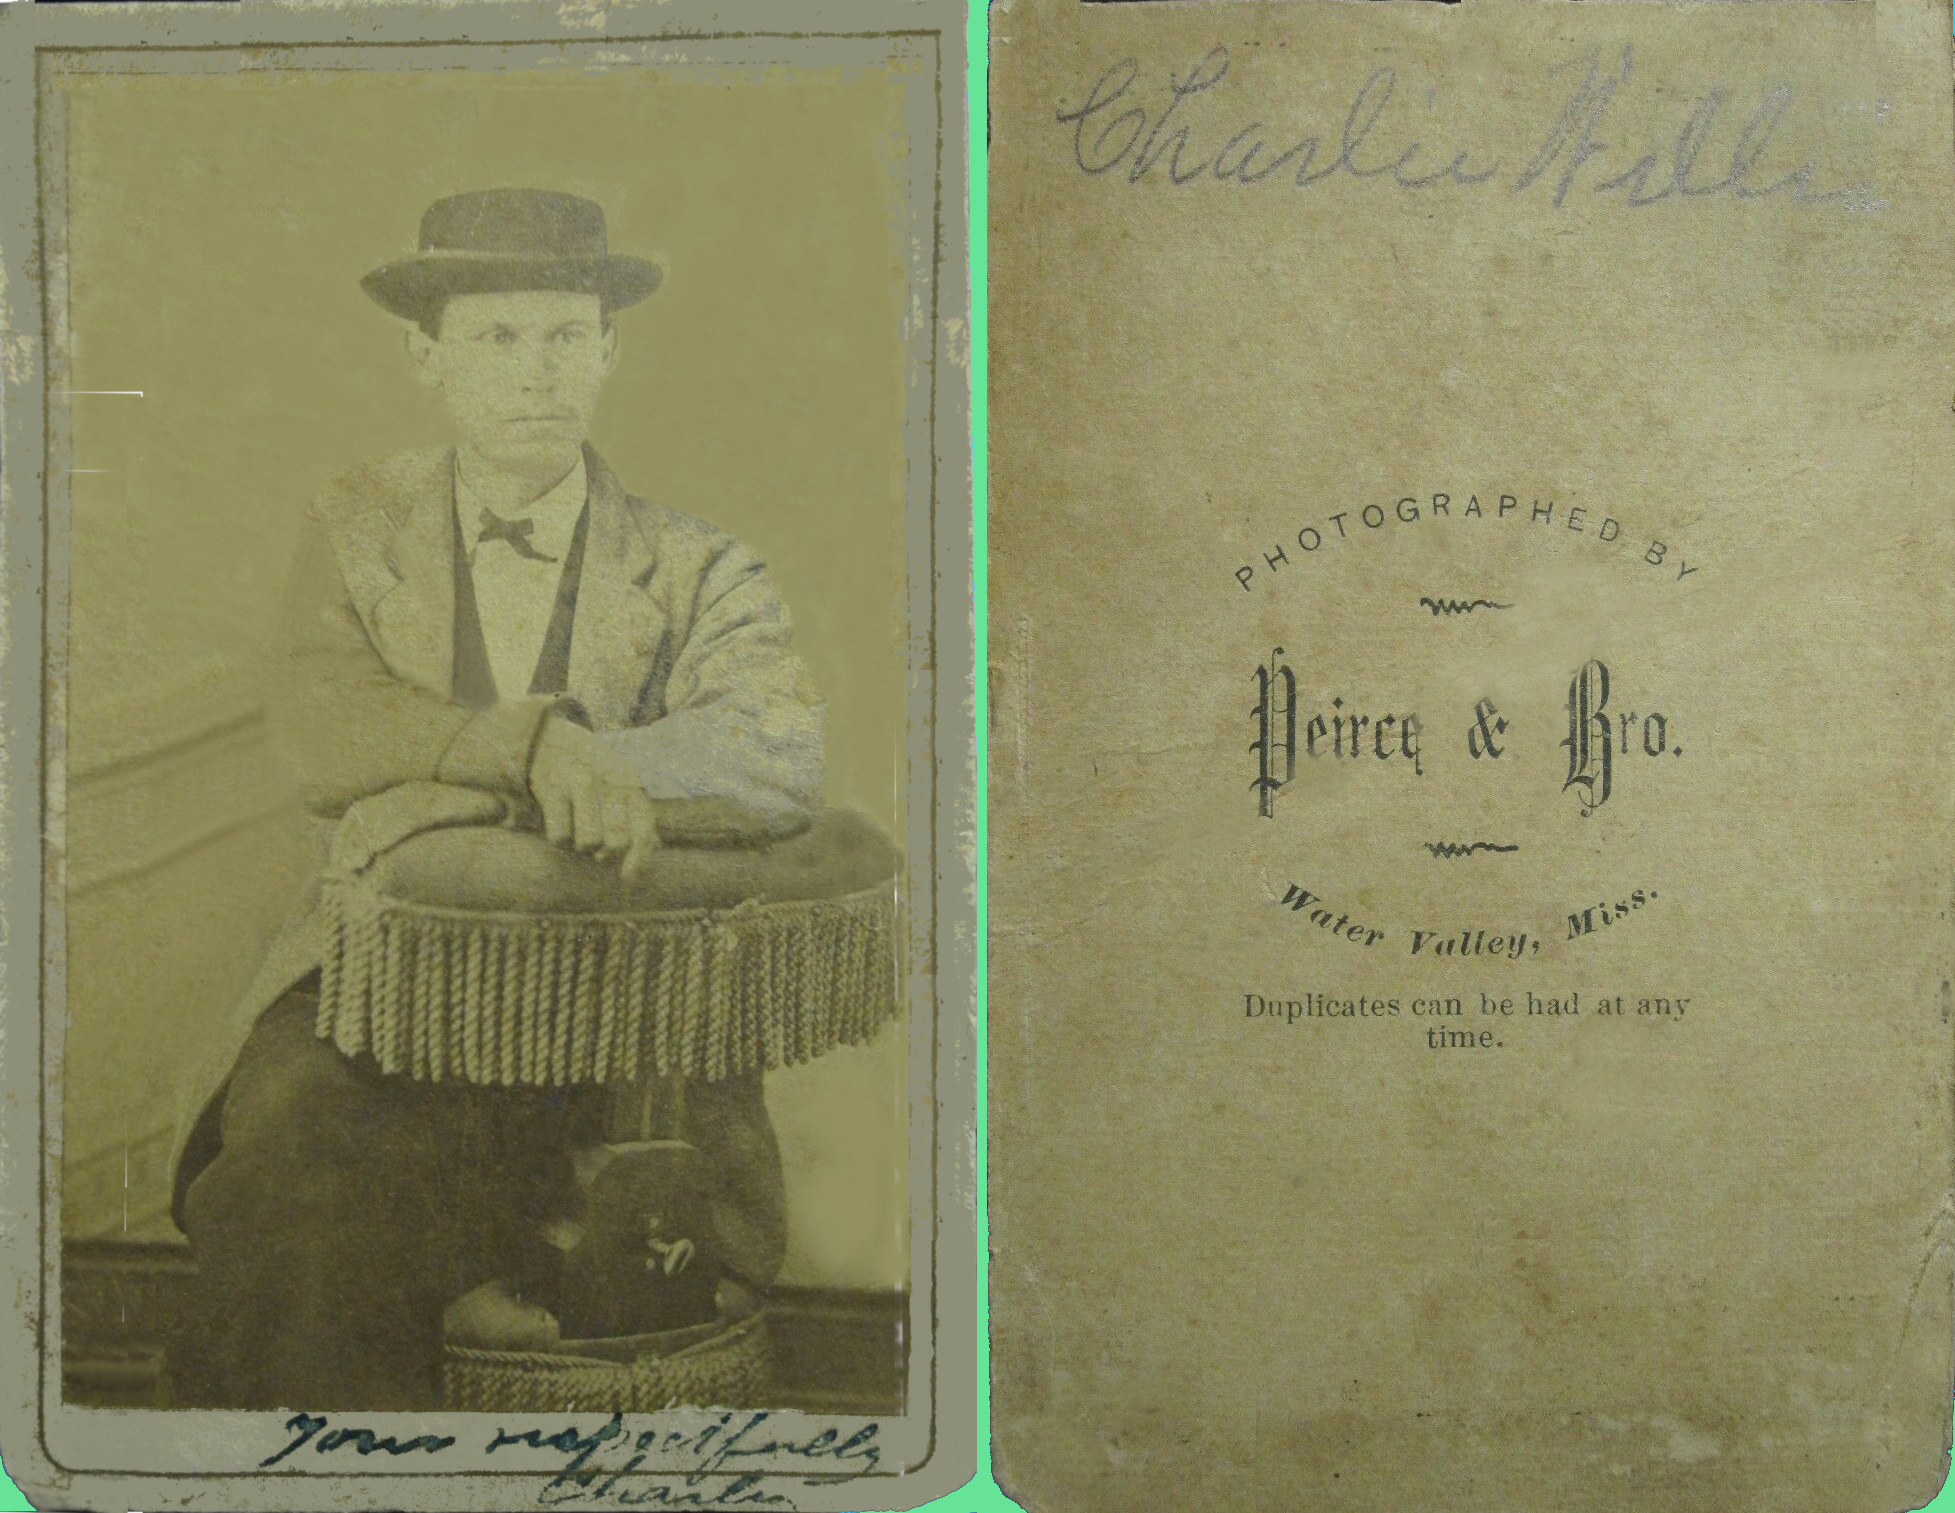 Yours respectfully
Charlie
Charlie Willi
PHOTOGRAPHED BY
Peirce & Bro.
Water Valley, Miss.
Duplicates can be had at any
time.